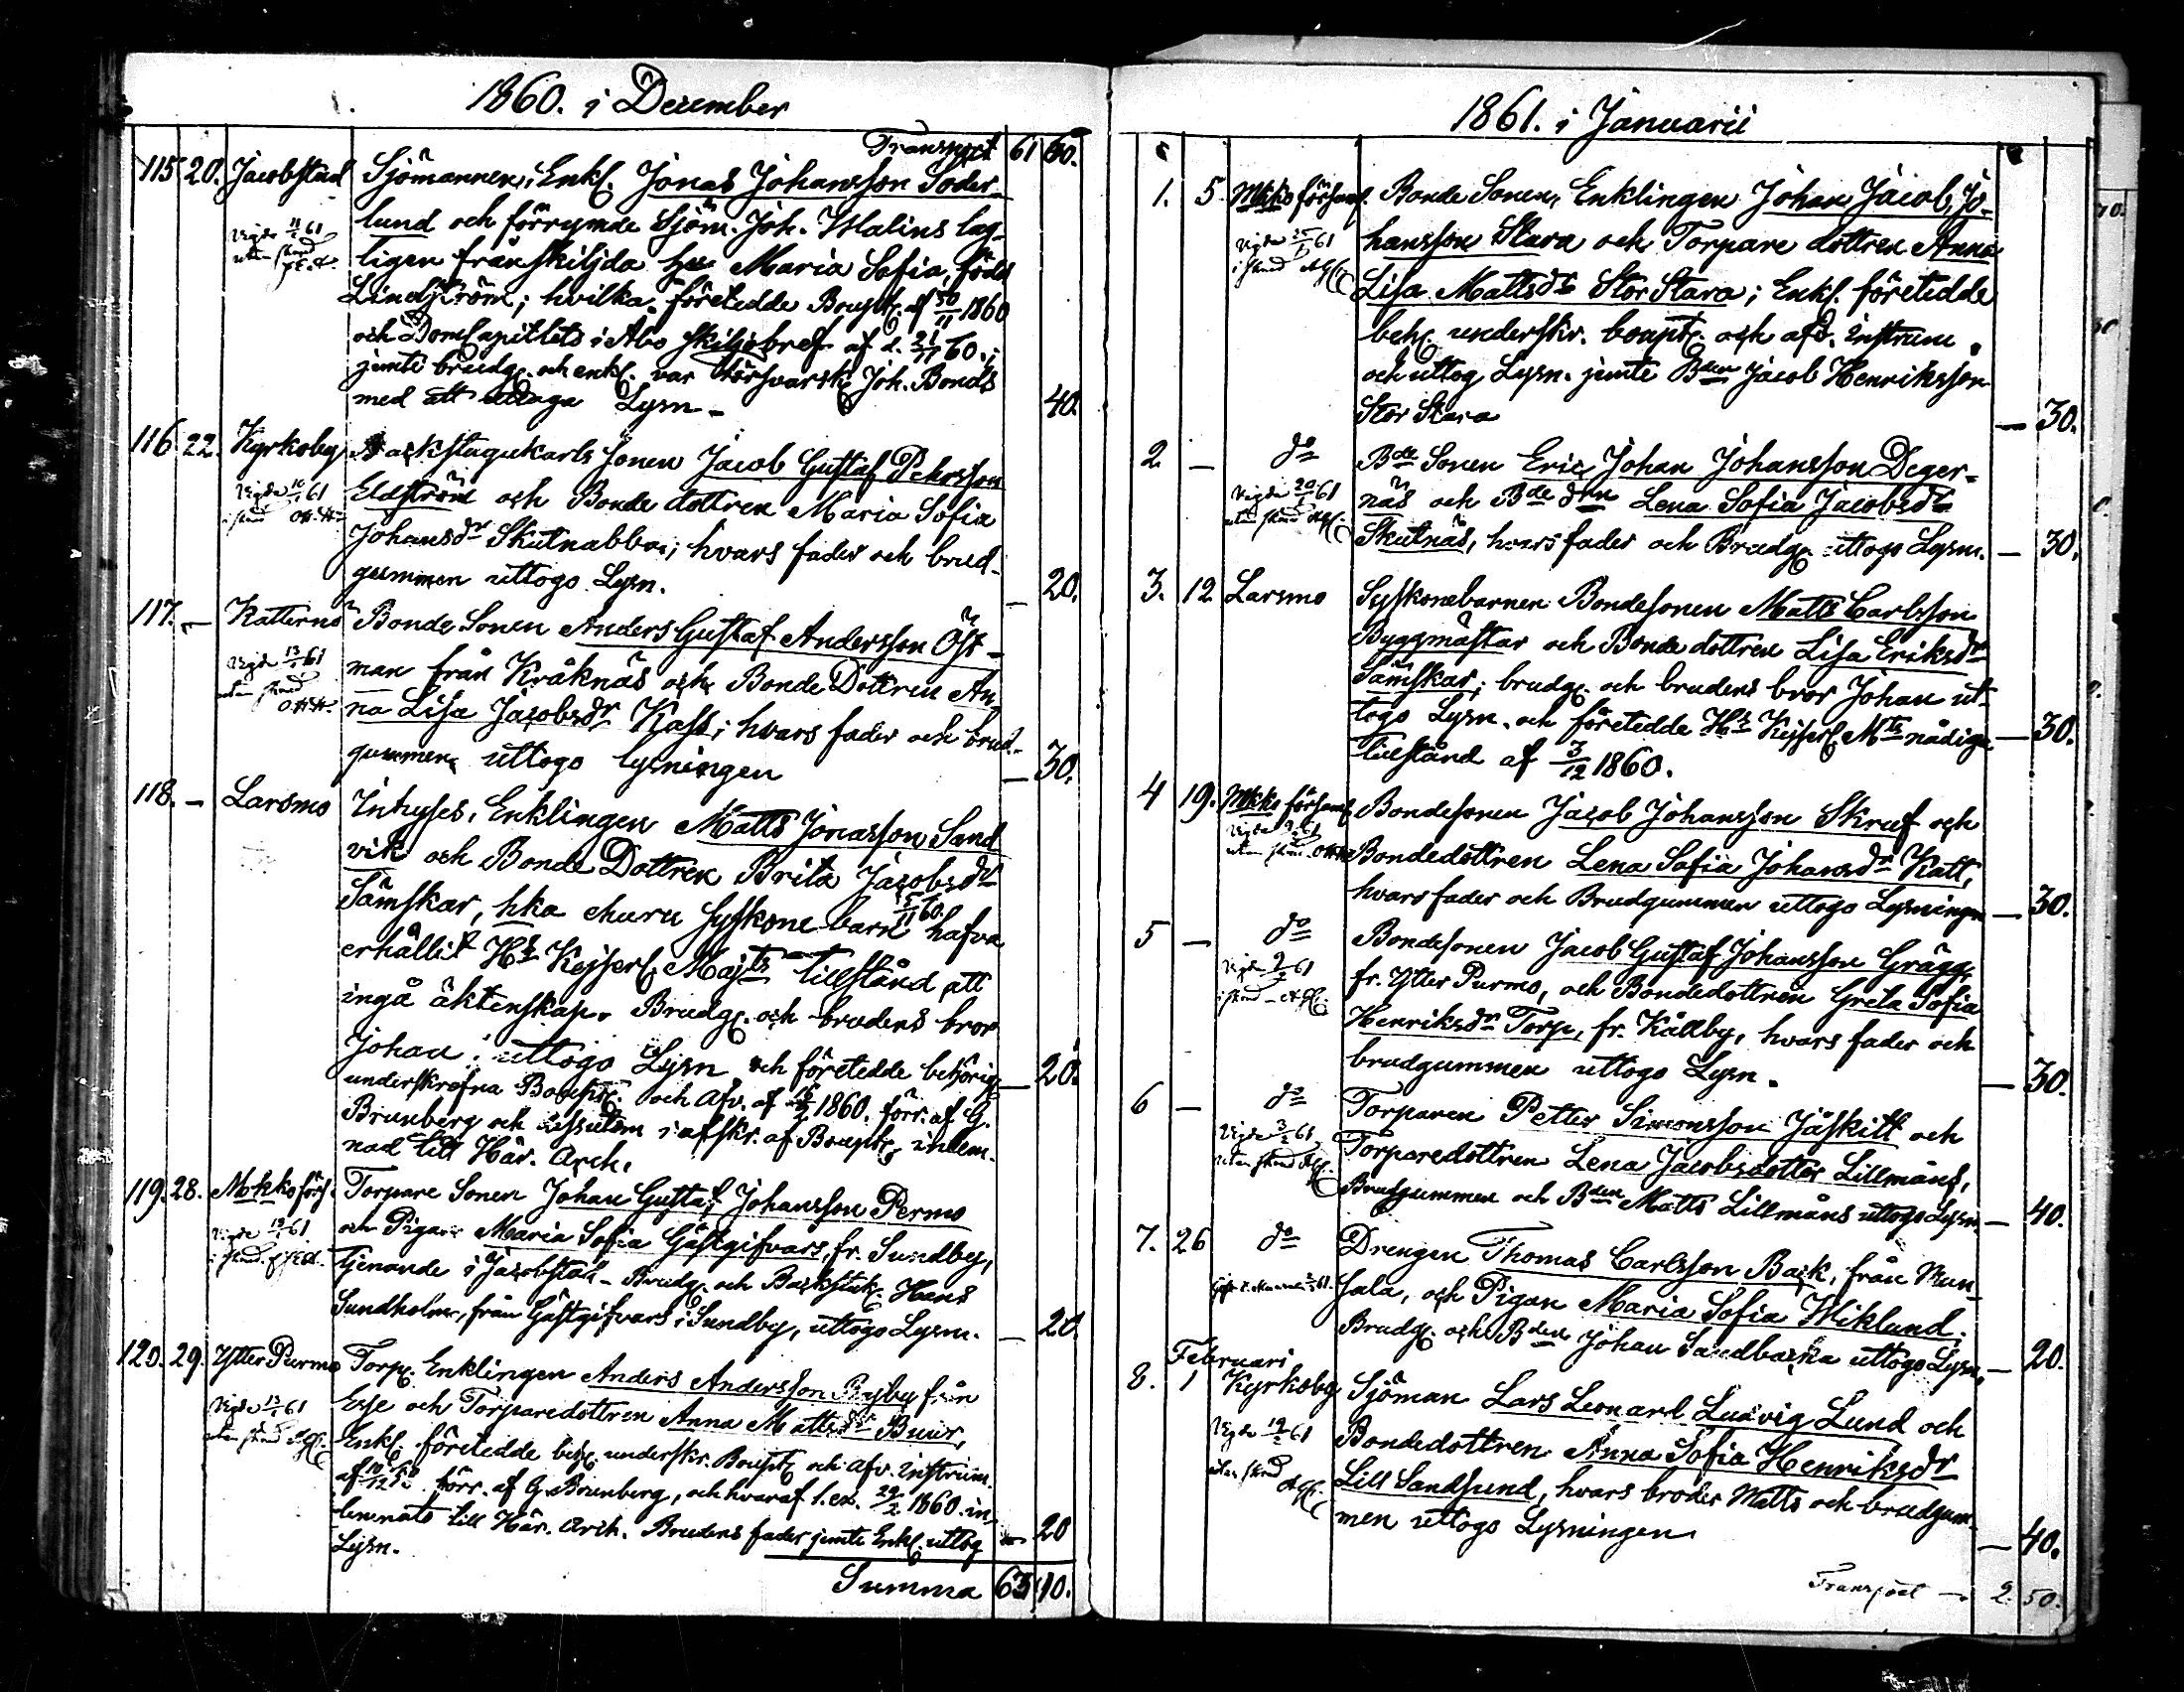 1860. i December
Transport 61 60.
115 20. Jacobstad Sjömannen, Enkl. Jonas Johansson Söder-
lund och förrymde Sjöm. Joh. Malins lag-
Vigde 11/1 61
utan stånd
ligen frånskiljda Maria Sofia, född
Lindström; hvilka företedde Bouptr. af 30/11 1860
och DomCapitlets i Åbo Skiljobref af d. 21/11 60.;
jemte brudg. och enkl. var Försvarsk. Joh. Bonds
med att uttaga Lysn. - 40.
116 22. Kyrkoby Backstugukarls Sonen Jacob Gustaf Pehrsson
Vigde 10/1 61
i stånd
Eldström och Bonde dottren Maria Sofia
Johansdr Skutnabba; hvars fader och brud-
gummen uttogo Lysn. — 20.
117. — Katternö Bonde Sonen Anders Gustaf Andersson Öst-
Vigde 13/1 61
utan stånd
man från Kråknäs och Bonde Dottren An-
na Lisa Jacobsdr Kass; hvars fader och brud-
gummen uttogo lysningen — 30.
118. — Larsmo Inhyses, Enklingen Matts Jonasson Sand
vik och Bonde Dottren Brita Jacobsdr
Sämskar, hka äfven Syskonebarn 15/11 60. hafva
erhållit Hs Kejserl. Majts tillstånd att
ingå äktenskap. Brudg. och brudens bror
Johan uttogo Lysn och företedde behörig. — 20.
underskrefna Bouptr. och Afv. af 1860. förr. af G.
Brunberg och dessutom i afskr. af Bouptr. inlem-
nad till Här. Arch.
119. 28. Mkko förs. Torpare Sonen Johan Gustaf Johansson Permo
Vigde 19/1 61
i stånd
och Pigan Maria Sofia Gästgifvars, fr. Sundby,
tjenande i Jacobstad - Brudg. och Backstuk. Hans
Sundholm, från Gästgifvars i Sundby, uttogo Lysn. — 20.
120. 29. Ytter Purmo Torp. Enklingen Anders Andersson Byby från
Vigde 13/1 61
utan stånd
Esse och Torparedottren Anna Mattsdr Buur,
Enkl. företedde beh. underskr. Bouptr. och Afv. Instrum.
af 10/12 förr. af G. Brunberg, och hvaraf 1. ex. 29/2 1860. in-
lemnats till Här. Arch. Brudens fader jemte Enkl. uttog — 20
Lysn.
Summa 63 10.
1861. i Januarii
1. 5. Mkko församl. Bonde Sonen, Enklingen Johan Jacob Jo-
Vigde 25/1 61
i stånd
hansson Stara och Torpare dottren Anna
Lisa Mattsdr Stor Stara; Enkl. företedde
beh. underskr. bouptr. och afv. Instrum.
och uttog Lysn. jemte Bden Jacob Henriksson
Stor Stara — 30.
2. — do Bde Sonen Eric Johan Johansson Deger-
Vigde 20/1 61
utan stånd
näs och Bde drn Lena Sofia Jacobsdr
Skutnäs, hvars fader och Brudg. uttogo Lysn. — 30.
3. 12 Larsmo Syskonebarnen Bondesonen Matts Carlsson
Byggmästar och Bonde dottren Lisa Eriksdr
Sämskar; brudg. och brudens bror Johan ut-
togo Lysn. och företedde Hs Kejserl. Mts nådiga — 30.
tillstånd af 3/12 1860.
4 19. Mkko församl. Bondesonen Jacob Johansson Skruf och
utan stånd
Bondedottren Lena Sofia Johansdr Katt,
hvars fader och Brudgummen uttogo Lysningen — 30.
5 — do Bondesonen Jacob Gustaf Johansson Grägg
Vigde 9/2 61
i stånd
fr. Ytter Purmo, och Bondedottren Greta Sofia
Henriksdr Torp, fr. Kållby, hvars fader och
brudgummen uttogo Lysn. — 30.
6 — do Torparen Petter Simonsson Jäskitt och
Vigde 3/2 61
utan stånd
Torparedottren Lena Jacobsdotter Lillmåns,
Brudgummen och Bden Matts Lillmåns uttogo Lysn. — 40.
7. 26 do Drengen Thomas Carlsson Back, från Mun-
sala, och Pigan Maria Sofia Wiklund;
Brudg. och Bden Johan Sandbacka uttogo Lysn. — 20.
Februari
8. 1 Kyrkoby Sjöman Lars Leonard Ludvig Lund och
Vigde 19/2 61
utan stånd
Bondedottren Anna Sofia Henriksdr
Lill Sandsund, hvars broder Matts och brudgum-
men uttogo Lysningen — 40.
Transport — 2. 50.